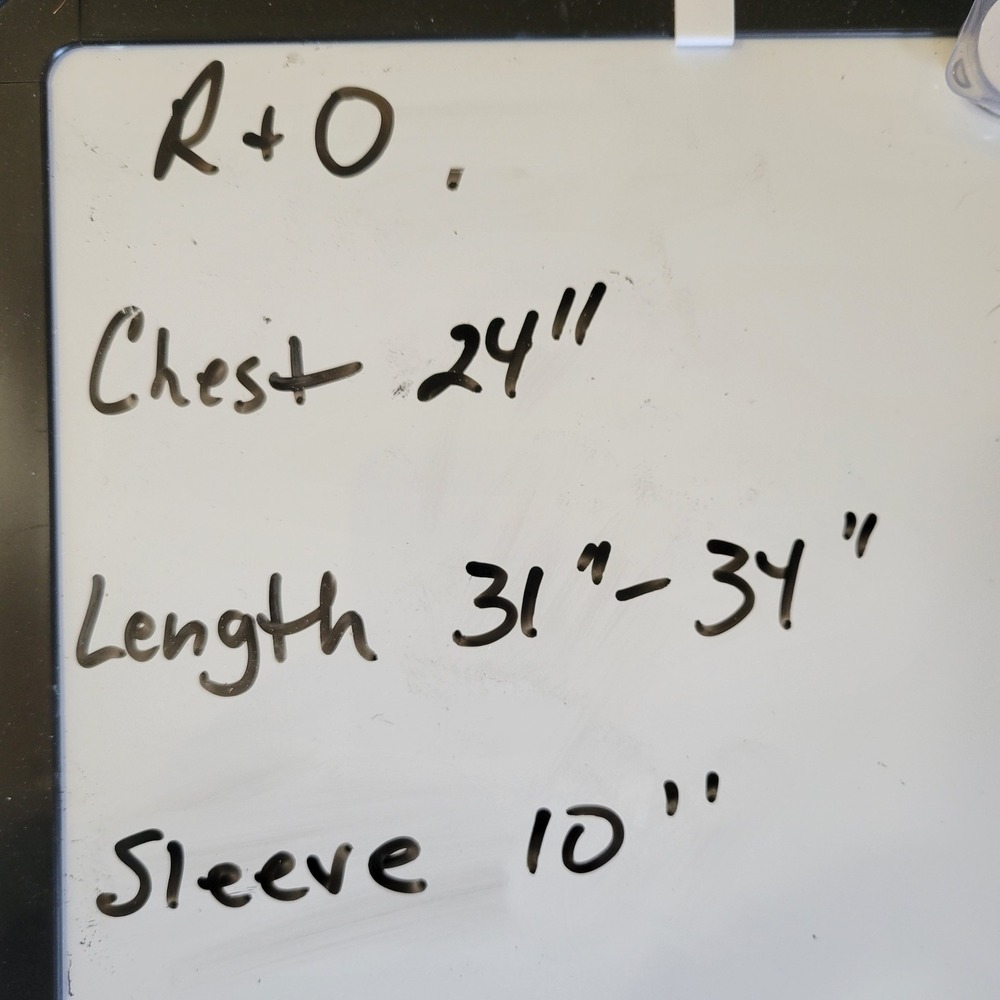 R + O .
Chest 24"
Length 31" - 34"
Sleeve 10"